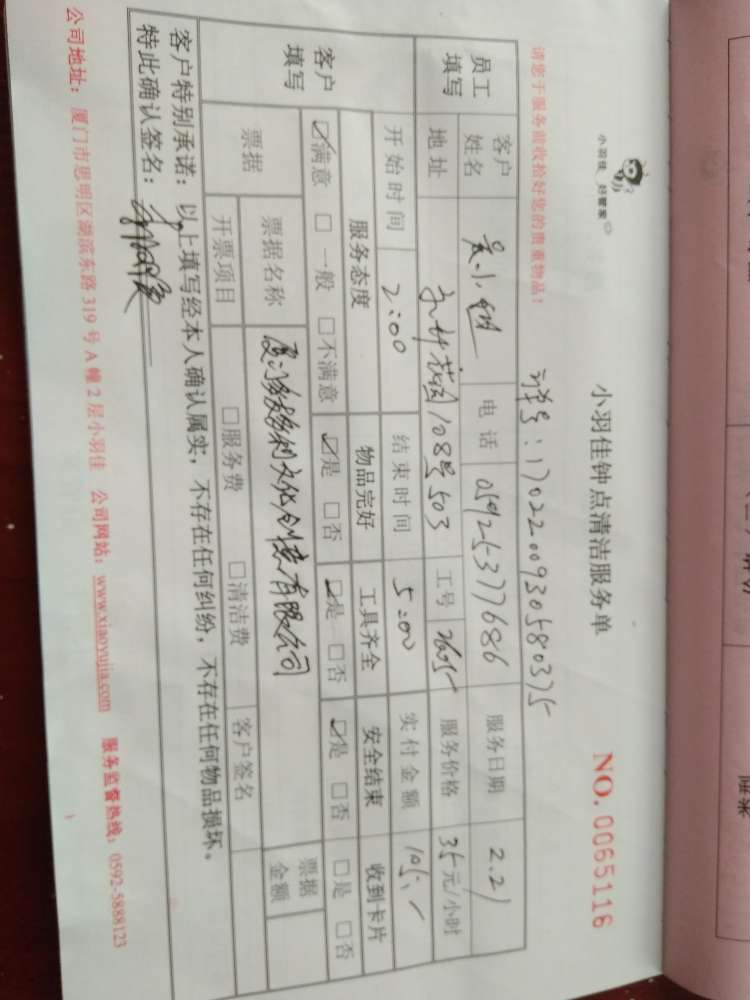 小羽佳 好管家
小羽佳钟点清洁服务单
NO. 0065116
请您于服务前收拾好您的贵重物品！
订单号：17022009305580375
员工填写
客户姓名 吴小姐 电话 0592-5377686 服务日期 2.21
地址 108号503 工号 2605 服务价格 35元/小时
开始时间 2:00 结束时间 5:00 实付金额 105.
客户填写
服务态度 物品完好 工具齐全 安全结束 收到卡片
☑满意 □一般 □不满意 ☑是 □否 ☑是 □否 ☑是 □否 □是 □否
票据 票据名称 厦门 文化创意有限公司 票据金额
开票项目 □服务费 □清洁费 客户签名
客户特别承诺：以上填写经本人确认属实，不存在任何纠纷，不存在任何物品损坏。
特此确认签名：
公司地址：厦门市思明区湖滨东路319号A幢2层小羽佳 公司网站：www.xiaoyujia.com 服务监督热线：0592-5888123